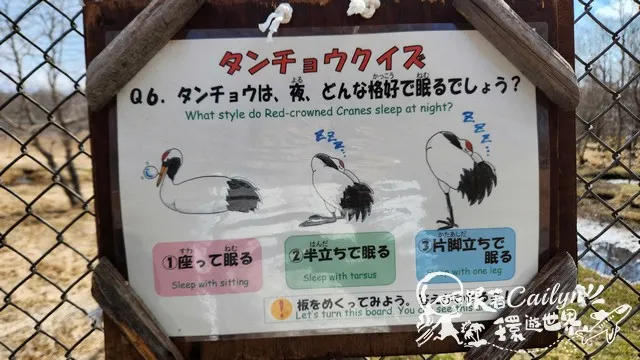 タンチョウクイズ
Q6. タンチョウは、夜、どんな格好で眠るでしょう?
よる かっこう ねむ
What style do Red-crowned Cranes sleep at night?
ZZZ...
ZZZ...
①座って眠る
すわ ねむ
Sleep with sitting
②半立ちで眠る
はんだ
Sleep with tarsus
③片脚立ちで
かたあしだ
眠る
Sleep with one leg
板をめくってみよう。
Let's turn this board. You see this
跟著Cailyn
環遊世界